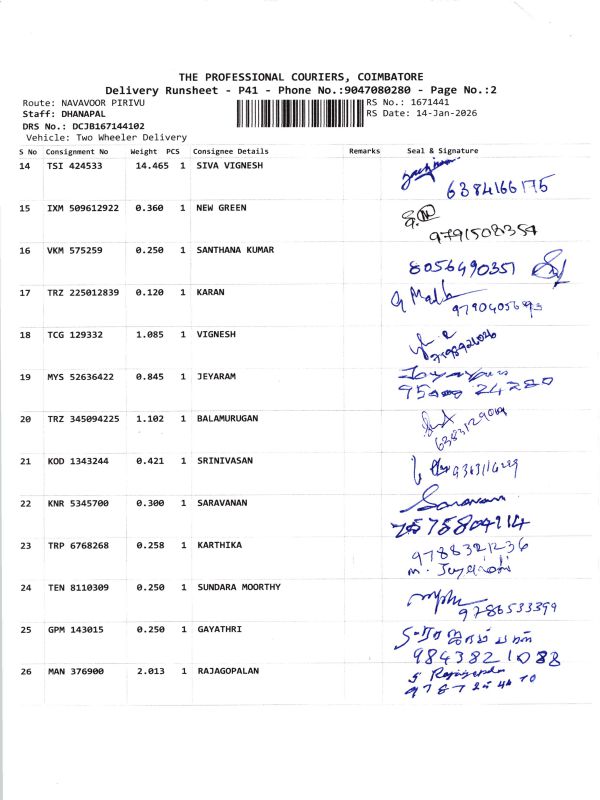 THE PROFESSIONAL COURIERS, COIMBATORE
Delivery Runsheet - P41 - Phone No.:9047080280 - Page No.:2
Route: NAVAVOOR PIRIVU RS No.: 1671441
Staff: DHANAPAL RS Date: 14-Jan-2026
DRS No.: DCJB167144102
Vehicle: Two Wheeler Delivery
S No Consignment No Weight PCS Consignee Details Remarks Seal & Signature
14 TSI 424533 14.465 1 SIVA VIGNESH
6384166175
15 IXM 509612922 0.360 1 NEW GREEN
9791508354
16 VKM 575259 0.250 1 SANTHANA KUMAR
8056490351
17 TRZ 225012839 0.120 1 KARAN
18 TCG 129332 1.085 1 VIGNESH
19 MYS 52636422 0.845 1 JEYARAM
24280
20 TRZ 345094225 1.102 1 BALAMURUGAN
6383129019
21 KOD 1343244 0.421 1 SRINIVASAN
22 KNR 5345700 0.300 1 SARAVANAN
Saravanan
23 TRP 6768268 0.258 1 KARTHIKA
9788321236
24 TEN 8110309 0.250 1 SUNDARA MOORTHY
9786533399
25 GPM 143015 0.250 1 GAYATHRI
9843821088
26 MAN 376900 2.013 1 RAJAGOPALAN